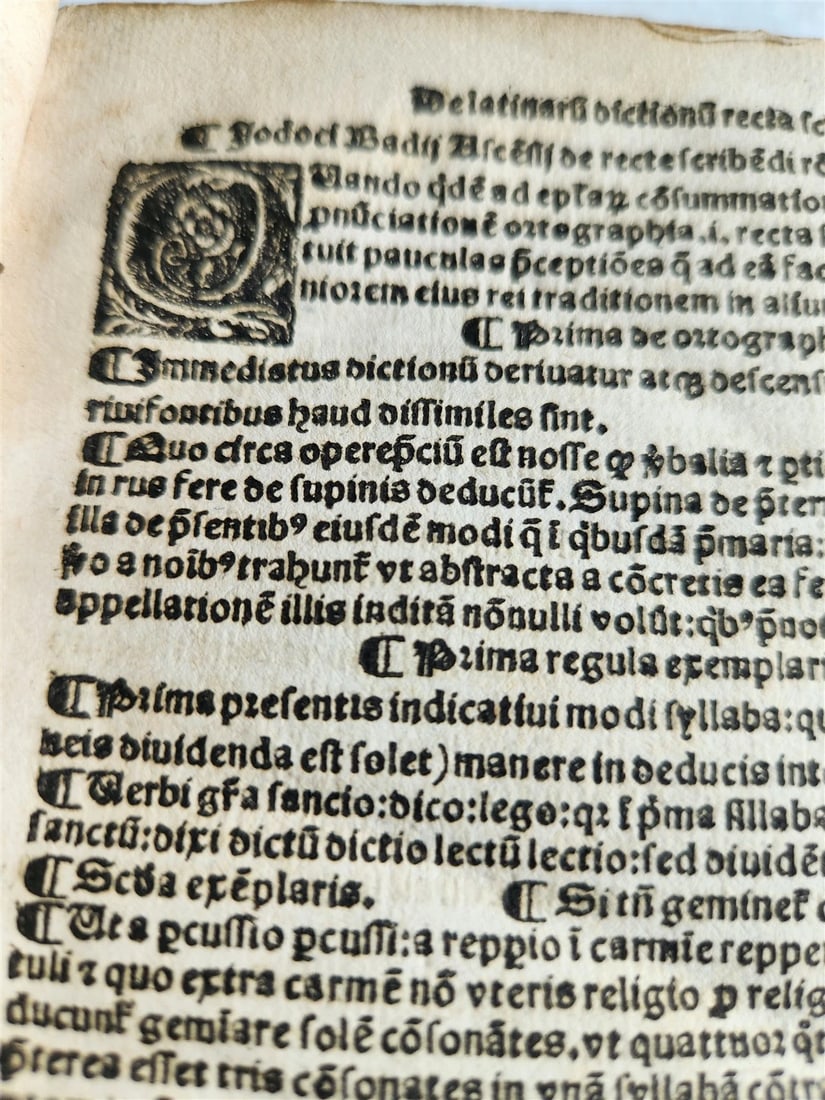 De latinarū dictionū recta sc
¶ Jodoci Badij Ascēsij de recte scribēdi rō
Quando qdē ad epłaꝝ cōsummatio
ꝓnūciationē ortographia .i. recta
tuit pauculas p̄ceptiōes q̄ ad eā fac
niorem eius rei traditionem in alſu
¶ Prima de ortograph
¶ Immediatus dictionū deriuatur atqꝫ deſcenſ
riui fontibus haud diſſimiles ſint.
¶ Quo circa operep̄ciū eſt noſſe ꝙ v̄balia ⁊ ꝑti
in rus fere de ſupinis deducūt̄. Supina de p̄ter
illa de p̄ſentibꝰ eiuſdē modi q̄ ī qͥbuſdā p̄maria:
v̄o a noībꝰ trahunt̄ vt abſtracta a cōcretis ea fe
appellationē illis inditā nōnulli volūt: qͥbꝰ p̄no
¶ Prima regula exemplar
¶ Prima preſentis indicatiui modi ſyllaba: qu
neis diuidenda eſt ſolet) manere in deducis int
¶ Verbi gr̄a ſancio: dico: lego: qꝛ ī pͥma ſillaba
ſanctū: dixi dictū dictio lectū lectio: ſed diuidē
¶ Scḋa exēplaris. ¶ Si tn̄ geminet̄
¶ Ut a ꝑcuſſio ꝑcuſſi: a repꝑio ī carmīe reppe
tuli ⁊ quo extra carmē nō vteris religio ꝓ relig
ducunt̄ gemīare ſolē cōſonātes, vt quattuor qͣt
p̄terea eſſet tris cōſonates in vnā ſyllabā cōtr